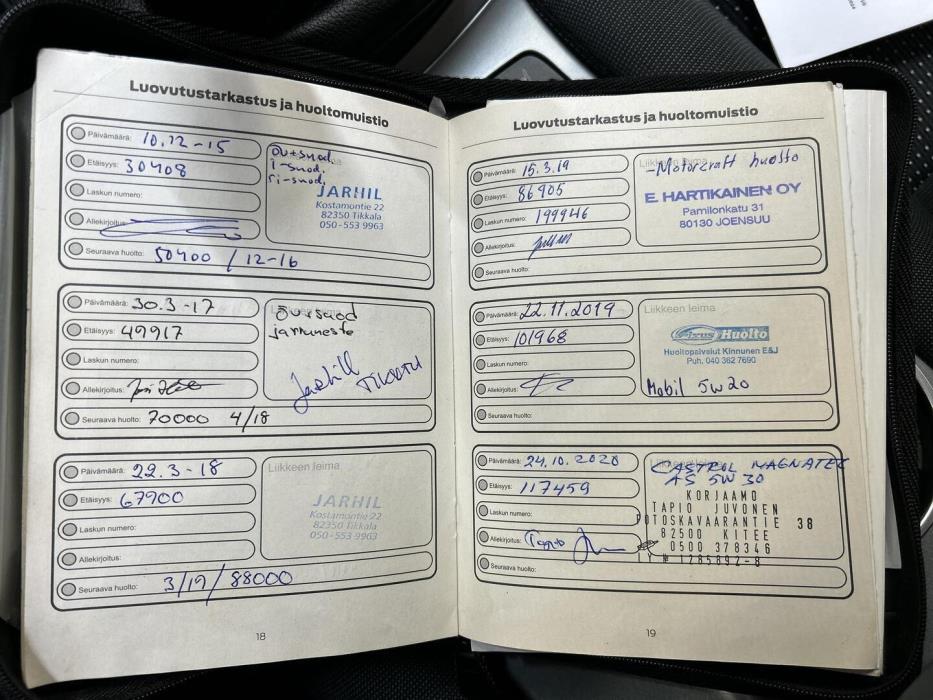 Luovutustarkastus ja huoltomuistio
Päivämäärä: 10.12-15
Etäisyys: 30408
Laskun numero:
Allekirjoitus:
Seuraava huolto: 50400 / 12-16
öv+suod.
i-suod.
ri-suod.
JARHIL
Kostamontie 22
82350 Tikkala
050-553 9963
Päivämäärä: 30.3-17
Etäisyys: 49917
Laskun numero:
Allekirjoitus:
Seuraava huolto: 70000 4/18
öv+suod
jarruneste
Jarhill
Päivämäärä: 22.3-18
Etäisyys: 67900
Laskun numero:
Allekirjoitus:
Seuraava huolto: 3/19/88000
Liikkeen leima
JARHIL
Kostamontie 22
82350 Tikkala
050-553 9963
18
Luovutustarkastus ja huoltomuistio
Päivämäärä: 15.3.19
Etäisyys: 86905
Laskun numero: 199946
Allekirjoitus:
Seuraava huolto:
-Motorcraft huolto
E. HARTIKAINEN OY
Pamilonkatu 31
80130 JOENSUU
Päivämäärä: 22.11.2019
Etäisyys: 101968
Laskun numero:
Allekirjoitus:
Seuraava huolto:
Liikkeen leima
Huolto
Huoltopalvelut Kinnunen E&J
Puh. 040 362 7690
Mobil 5W20
Päivämäärä: 24.10.2020
Etäisyys: 117459
Laskun numero:
Allekirjoitus: Tapio
Seuraava huolto:
CASTROL MAGNATEC
A5 5W30
KORJAAMO
TAPIO JUVONEN
POTOSKAVAARANTIE 38
82500 KITEE
0500 378346
LY № 1285892-8
19